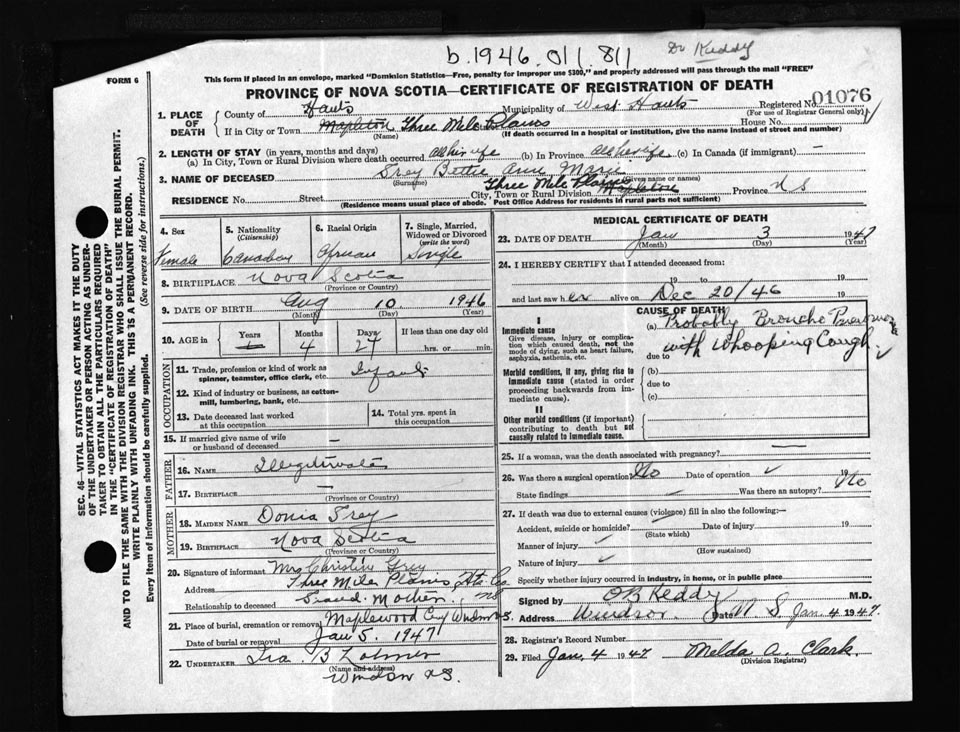 b.1946.011.811 Dr Keddy
FORM 6
This form if placed in an envelope, marked "Dominion Statistics—Free, penalty for improper use $300," and properly addressed will pass through the mail "FREE"
PROVINCE OF NOVA SCOTIA—CERTIFICATE OF REGISTRATION OF DEATH
1. PLACE OF DEATH
County of Hants Municipality of West Hants Registered No. 01076
(For use of Registrar General only)
If in City or Town Mapleton Three Mile Plains House No.
(Name) (If death occurred in a hospital or institution, give the name instead of street and number)
2. LENGTH OF STAY (in years, months and days)
(a) In City, Town or Rural Division where death occurred all her life (b) In Province all her life (c) In Canada (if immigrant) —
3. NAME OF DECEASED Grey Bettie Ann Marie
(Surname) (Given name or names)
RESIDENCE No. Street City, Town or Rural Division Three Mile Plains Mapleton Province N S
(Residence means usual place of abode. Post Office Address for residents in rural parts not sufficient)
4. Sex
Female
5. Nationality
(Citizenship)
Canadian
6. Racial Origin
African
7. Single, Married, Widowed or Divorced
(write the word)
Single
8. BIRTHPLACE Nova Scotia
(Province or Country)
9. DATE OF BIRTH Aug 10 1946
(Month) (Day) (Year)
10. AGE in Years Months 4 Days 24 If less than one day old
hrs. or min.
OCCUPATION
11. Trade, profession or kind of work as spinner, teamster, office clerk, etc. Infant
12. Kind of industry or business, as cotton-mill, lumbering, bank, etc.
13. Date deceased last worked at this occupation
14. Total yrs. spent in this occupation
15. If married give name of wife or husband of deceased —
FATHER
16. NAME Illegitimate
17. BIRTHPLACE —
(Province or Country)
MOTHER
18. MAIDEN NAME Donia Grey
19. BIRTHPLACE Nova Scotia
(Province or Country)
20. Signature of informant Mrs Christin Grey
Address Three Mile Plains, Hts Co
Relationship to deceased Grand Mother, NS
21. Place of burial, cremation or removal Maplewood Cey Windsor NS
Date of burial or removal Jan 5. 1947
22. UNDERTAKER Ira B
(Name and address)
Windsor NS.
MEDICAL CERTIFICATE OF DEATH
23. DATE OF DEATH Jan 3 1947
(Month) (Day) (Year)
24. I HEREBY CERTIFY that I attended deceased from:
19 to 19
and last saw her alive on Dec 20/46 19
CAUSE OF DEATH
I
Immediate cause
Give disease, injury or complication which caused death, not the mode of dying, such as heart failure, asphyxia, asthenia, etc.
(a) Probably Broncho Pneumonia
with Whooping Cough
due to
Morbid conditions, if any, giving rise to immediate cause (stated in order proceeding backwards from immediate cause).
(b)
due to
(c)
II
Other morbid conditions (if important) contributing to death but not causally related to immediate cause.
25. If a woman, was the death associated with pregnancy?
26. Was there a surgical operation? No Date of operation 19
State findings Was there an autopsy? No
27. If death was due to external causes (violence) fill in also the following:—
Accident, suicide or homicide? Date of injury 19
(State which)
Manner of injury
(How sustained)
Nature of injury
Specify whether injury occurred in industry, in home, or in public place
Signed by O B Keddy M.D.
Address Windsor, N S. Date Jan 4 1947.
28. Registrar's Record Number
29. Filed Jan. 4 1947 Melda A. Clark.
(Division Registrar)
SEC. 46—VITAL STATISTICS ACT MAKES IT THE DUTY
OF THE UNDERTAKER OR PERSON ACTING AS UNDER-
TAKER TO OBTAIN ALL THE PARTICULARS REQUIRED
IN THE "CERTIFICATE OF REGISTRATION OF DEATH"
AND TO FILE THE SAME WITH THE DIVISION REGISTRAR WHO SHALL ISSUE THE BURIAL PERMIT.
WRITE PLAINLY WITH UNFADING INK. THIS IS A PERMANENT RECORD.
Every item of information should be carefully supplied. (See reverse side for instructions.)